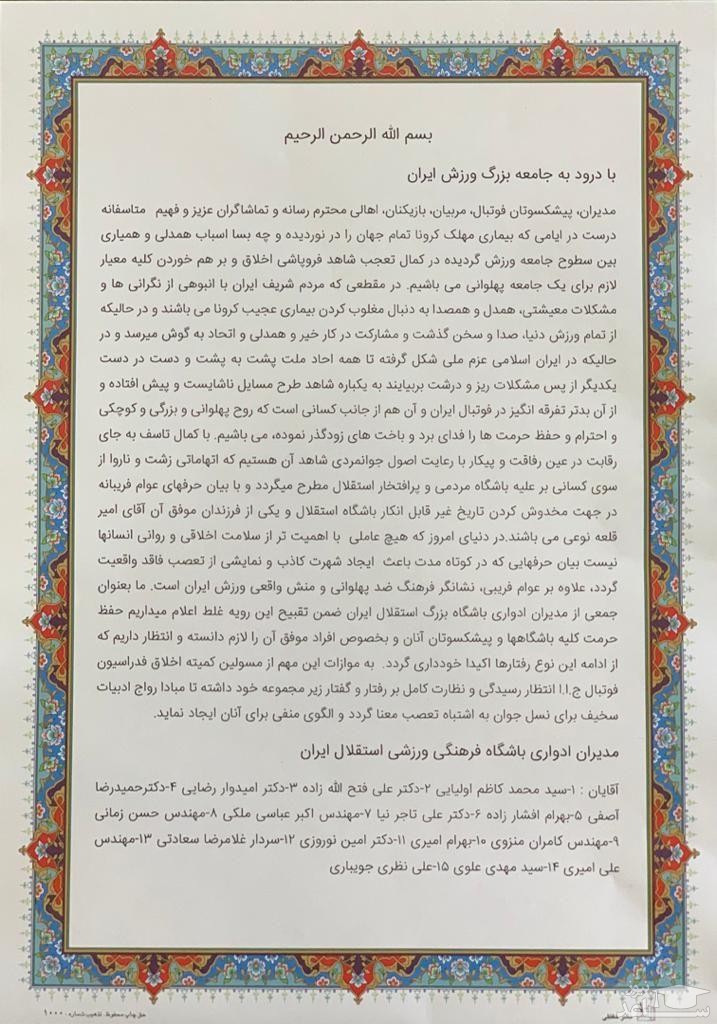 بسم الله الرحمن الرحیم
با درود به جامعه بزرگ ورزش ایران
مدیران، پیشکسوتان فوتبال، مربیان، بازیکنان، اهالی محترم رسانه و تماشاگران عزیز و فهیم متاسفانه
درست در ایامی که بیماری مهلک کرونا تمام جهان را در نوردیده و چه بسا اسباب همدلی و همیاری
بین سطوح جامعه ورزش گردیده در کمال تعجب شاهد فروپاشی اخلاق و بر هم خوردن کلیه معیار
لازم برای یک جامعه پهلوانی می باشیم. در مقطعی که مردم شریف ایران با انبوهی از نگرانی ها و
مشکلات معیشتی، همدل و همصدا به دنبال مغلوب کردن بیماری عجیب کرونا می باشند و در حالیکه
از تمام ورزش دنیا، صدا و سخن گذشت و مشارکت در کار خیر و همدلی و اتحاد به گوش میرسد و در
حالیکه در ایران اسلامی عزم ملی شکل گرفته تا همه احاد ملت پشت به پشت و دست در دست
یکدیگر از پس مشکلات ریز و درشت بربیایند به یکباره شاهد طرح مسایل ناشایست و پیش افتاده و
از آن بدتر تفرقه انگیز در فوتبال ایران و آن هم از جانب کسانی است که روح پهلوانی و بزرگی و کوچکی
و احترام و حفظ حرمت ها را فدای برد و باخت های زودگذر نموده، می باشیم. با کمال تاسف به جای
رقابت در عین رفاقت و پیکار با رعایت اصول جوانمردی شاهد آن هستیم که اتهاماتی زشت و ناروا از
سوی کسانی بر علیه باشگاه مردمی و پرافتخار استقلال مطرح میگردد و با بیان حرفهای عوام فریبانه
در جهت مخدوش کردن تاریخ غیر قابل انکار باشگاه استقلال و یکی از فرزندان موفق آن آقای امیر
قلعه نوعی می باشند.در دنیای امروز که هیچ عاملی با اهمیت تر از سلامت اخلاقی و روانی انسانها
نیست بیان حرفهایی که در کوتاه مدت باعث ایجاد شهرت کاذب و نمایشی از تعصب فاقد واقعیت
گردد، علاوه بر عوام فریبی، نشانگر فرهنگ ضد پهلوانی و منش واقعی ورزش ایران است. ما بعنوان
جمعی از مدیران ادواری باشگاه بزرگ استقلال ایران ضمن تقبیح این رویه غلط اعلام میداریم حفظ
حرمت کلیه باشگاهها و پیشکسوتان آنان و بخصوص افراد موفق آن را لازم دانسته و انتظار داریم که
از ادامه این نوع رفتارها اکیدا خودداری گردد. به موازات این مهم از مسولین کمیته اخلاق فدراسیون
فوتبال ج.ا.ا انتظار رسیدگی و نظارت کامل بر رفتار و گفتار زیر مجموعه خود داشته تا مبادا رواج ادبیات
سخیف برای نسل جوان به اشتباه تعصب معنا گردد و الگوی منفی برای آنان ایجاد نماید.
مدیران ادواری باشگاه فرهنگی ورزشی استقلال ایران
آقایان : ۱-سید محمد کاظم اولیایی ۲-دکتر علی فتح الله زاده ۳-دکتر امیدوار رضایی ۴-دکترحمیدرضا
آصفی ۵-بهرام افشار زاده ۶-دکتر علی تاجر نیا ۷-مهندس اکبر عباسی ملکی ۸-مهندس حسن زمانی
۹-مهندس کامران منزوی ۱۰-بهرام امیری ۱۱-دکتر امین نوروزی ۱۲-سردار غلامرضا سعادتی ۱۳-مهندس
علی امیری ۱۴-سید مهدی علوی ۱۵-علی نظری جویباری
حق چاپ محفوظ. تذهیب شماره: ۱۰۰۰